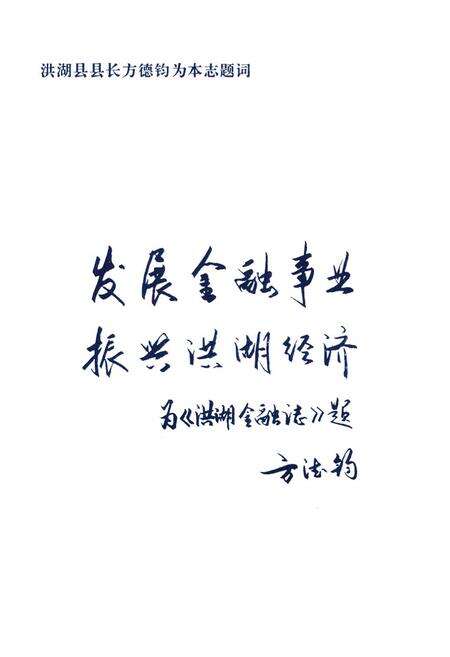 洪湖县县长方德钧为本志题词
发展金融事业
振兴洪湖经济
为《洪湖金融志》题
方德钧